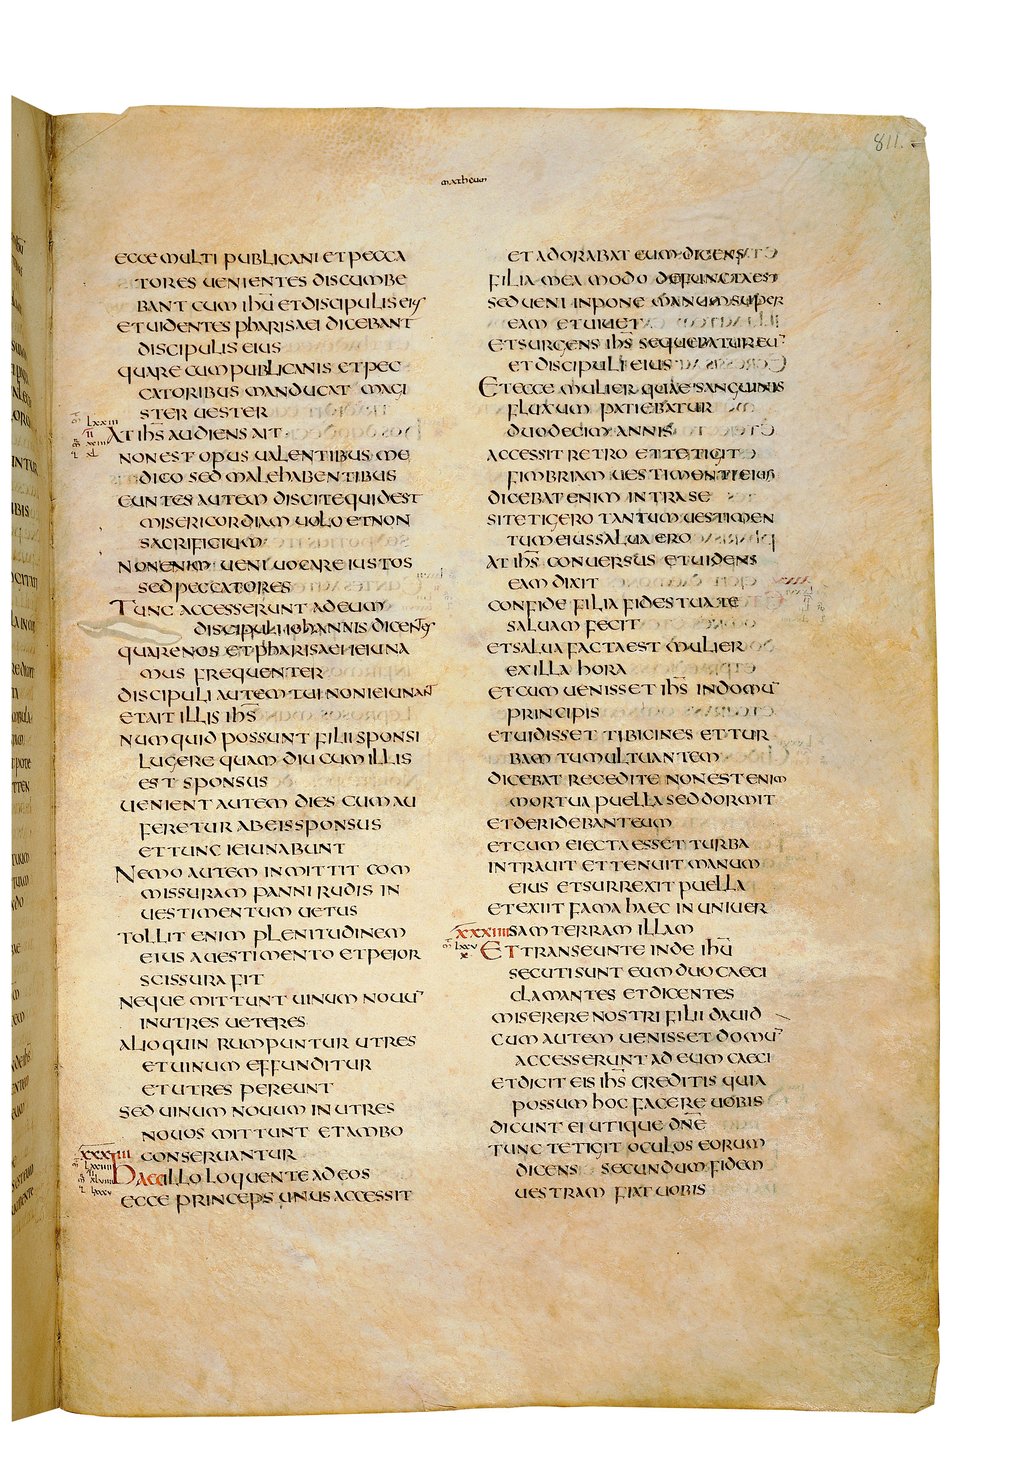 811.
matheum
ECCE MULTI PUBLICANI ET PECCA
TORES UENIENTES DISCUMBE
BANT CUM IHU ET DISCIPULIS EIUS
ET UIDENTES PHARISAEI DICEBANT
DISCIPULIS EIUS
QUARE CUM PUBLICANIS ET PEC
CATORIBUS MANDUCAT MAGI
STER UESTER
LXXIII
II
AT IHS AUDIENS AIT
NON EST OPUS UALENTIBUS ME
DICO SED MALE HABENTIBUS
EUNTES AUTEM DISCITE QUID EST
MISERICORDIAM UOLO ET NON
SACRIFICIUM
NON ENIM UENI UOCARE IUSTOS
SED PECCATORES
TUNC ACCESSERUNT AD EUM
DISCIPULI IOHANNIS DICENTES
QUARE NOS ET PHARISAEI IEIUNA
MUS FREQUENTER
DISCIPULI AUTEM TUI NON IEIUNANT
ET AIT ILLIS IHS
NUMQUID POSSUNT FILII SPONSI
LUGERE QUAM DIU CUM ILLIS
EST SPONSUS
UENIENT AUTEM DIES CUM AU
FERETUR AB EIS SPONSUS
ET TUNC IEIUNABUNT
NEMO AUTEM INMITTIT COM
MISSURAM PANNI RUDIS IN
UESTIMENTUM UETUS
TOLLIT ENIM PLENITUDINEM
EIUS A UESTIMENTO ET PEIOR
SCISSURA FIT
NEQUE MITTUNT UINUM NOUU
IN UTRES UETERES
ALIOQUIN RUMPUNTUR UTRES
ET UINUM EFFUNDITUR
ET UTRES PEREUNT
SED UINUM NOUUM IN UTRES
NOUOS MITTUNT ET AMBO
XXXIII CONSERUANTUR
HAEC ILLO LOQUENTE AD EOS
ECCE PRINCEPS UNUS ACCESSIT
ET ADORABAT EUM DICENS
FILIA MEA MODO DEFUNCTA EST
SED UENI INPONE MANUM SUPER
EAM ET UIUET
ET SURGENS IHS SEQUEBATUR EU
ET DISCIPULI EIUS
ET ECCE MULIER QUAE SANGUINIS
FLUXUM PATIEBATUR
DUODECIM ANNIS
ACCESSIT RETRO ET TETIGIT
FIMBRIAM UESTIMENTI EIUS
DICEBAT ENIM INTRA SE
SI TETIGERO TANTUM UESTIMEN
TUM EIUS SALUA ERO
AT IHS CONUERSUS ET UIDENS
EAM DIXIT
CONFIDE FILIA FIDES TUA TE
SALUAM FECIT
ET SALUA FACTA EST MULIER
EX ILLA HORA
ET CUM UENISSET IHS IN DOMU
PRINCIPIS
ET UIDISSET TIBICINES ET TUR
BAM TUMULTUANTEM
DICEBAT RECEDITE NON EST ENIM
MORTUA PUELLA SED DORMIT
ET DERIDEBANT EUM
ET CUM EIECTA ESSET TURBA
INTRAUIT ET TENUIT MANUM
EIUS ET SURREXIT PUELLA
ET EXIIT FAMA HAEC IN UNIUER
XXXIIII SAM TERRAM ILLAM
LXXV
X
ET TRANSEUNTE INDE IHU
SECUTI SUNT EUM DUO CAECI
CLAMANTES ET DICENTES
MISERERE NOSTRI FILII DAUID
CUM AUTEM UENISSET DOMU
ACCESSERUNT AD EUM CAECI
ET DICIT EIS IHS CREDITIS QUIA
POSSUM HOC FACERE UOBIS
DICUNT EI UTIQUE DNE
TUNC TETIGIT OCULOS EORUM
DICENS SECUNDUM FIDEM
UESTRAM FIAT UOBIS